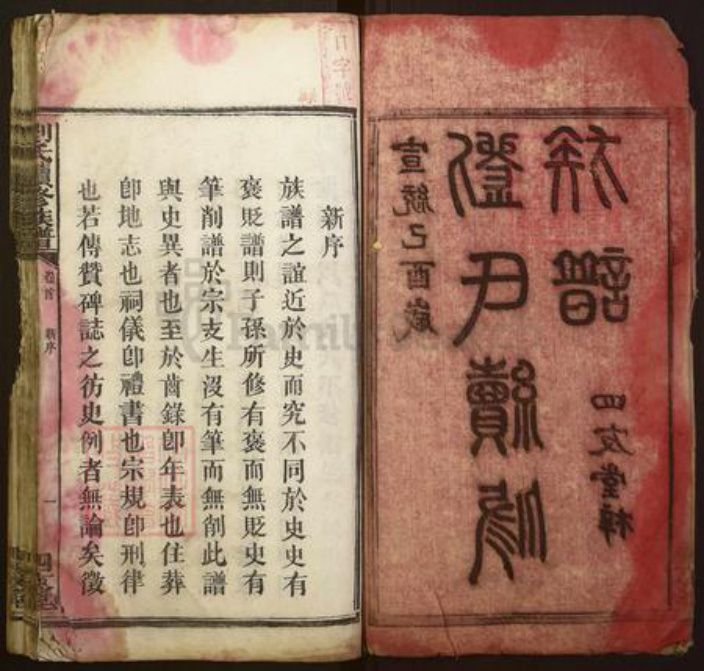 宣統己酉歲
劉氏續修
族譜
四友堂梓
新序
族譜之誼近於史而究不同於史史有
褒貶譜則子孫所修有褒而無貶史有
筆削譜於宗支生沒有筆而無削此譜
與史異者也至於齒錄卽年表也住葬
卽地志也祠儀卽禮書也宗規卽刑律
也若傳贊碑誌之彷史例者無論矣徵
劉氏續修族譜
卷首 新序
一
四友堂